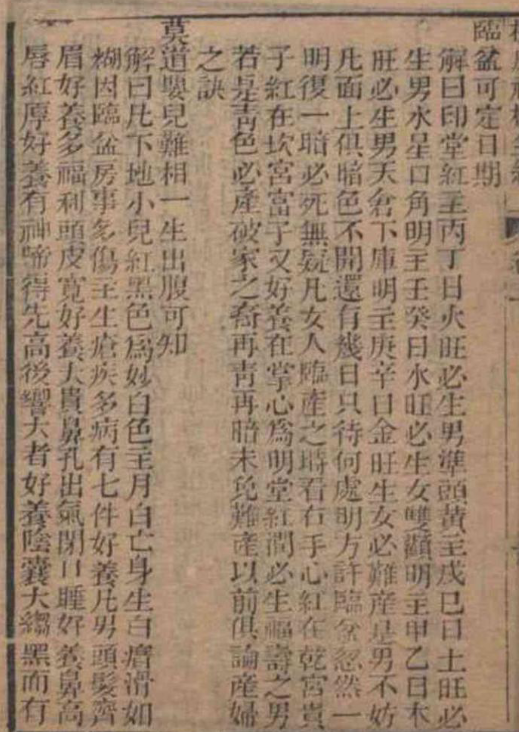 臨盆可定日期
解曰印堂紅主丙丁日火旺必生男準頭黃主戊巳日土旺必
生男水星口角明主壬癸日水旺必生女雙顴明主甲乙日木
旺必生男天倉下庫明主庚辛日金旺生女必難產是男不妨
凡面上俱暗色不開還有幾日只待何處明方許臨盆忽然一
明復一暗必死無疑凡女人臨產之時看右手心紅在乾宮貴
子紅在坎宮富子又好養在掌心為明堂紅潤必生福壽之男
若是青色必產破家之喬再青再暗未免難產以前俱論產婦
之訣
莫道嬰兒難相一生出腹可知
解曰凡下地小兒紅黑色為妙白色主月白亡身生白瘄滑如
糊因臨盆房事多傷主生瘡疾多病有七件好養凡男頭髮齊
眉好養多福利頭皮寬好養大貴鼻孔出氣閉口睡好養鼻高
唇紅厚好養有神啼得先高後響大者好養陰囊大縐黑而有